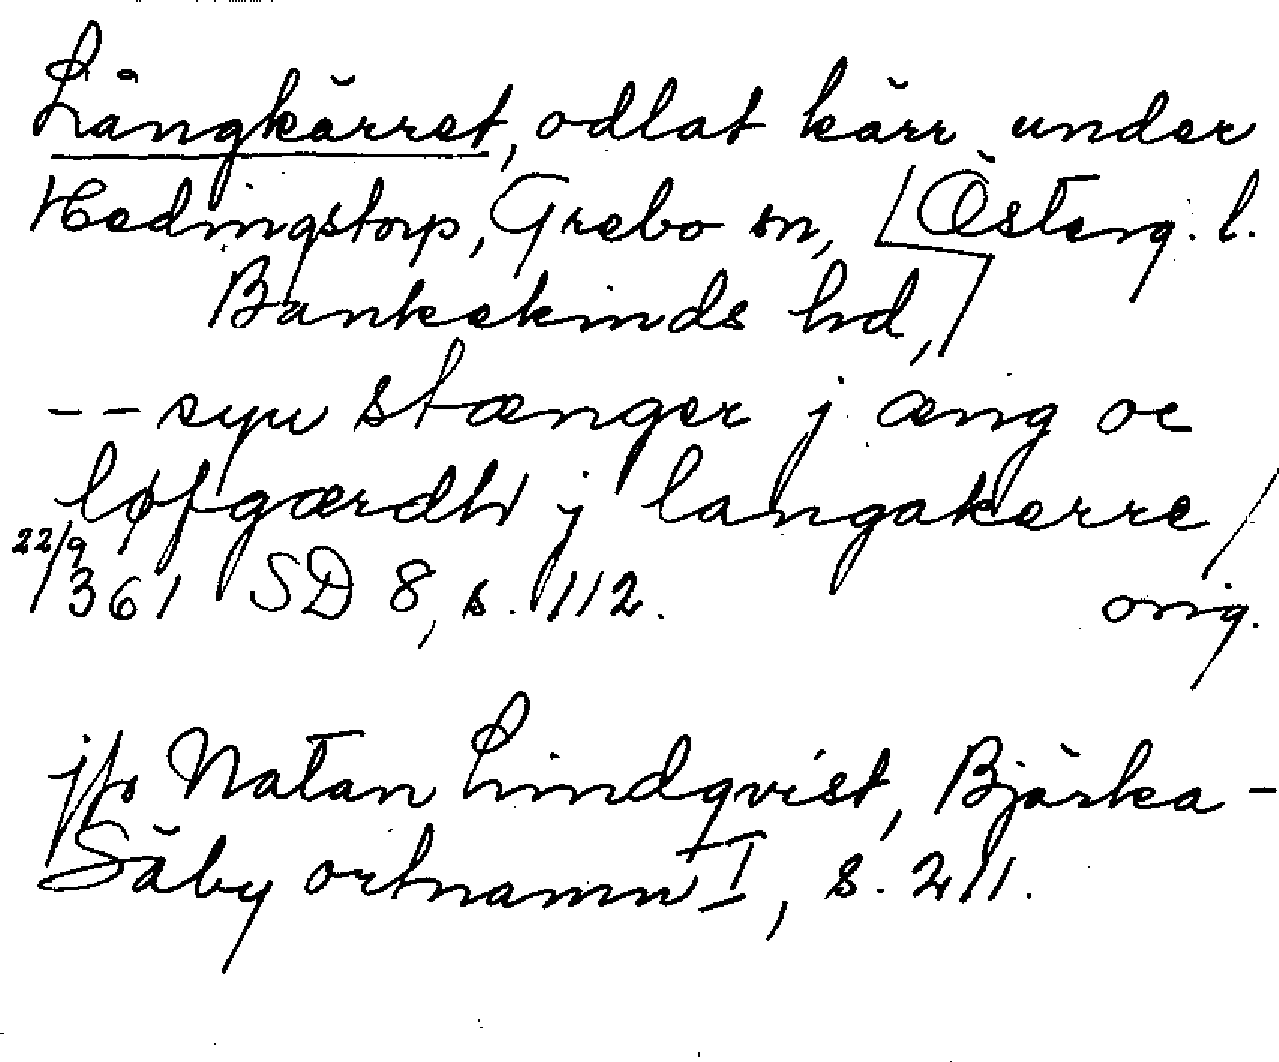 Långkärret, odlat kärr under
Hedingstorp, Grebo sn, [Österg. l.
Bankekinds hd,]
-- syu stænger j æng oc
løfgærdhi j langakerre /
22/9 1361 SD 8, s. 112. orig.
jfr Natan Lindqvist, Bjärka-
Säby ortnamn I, s. 211.